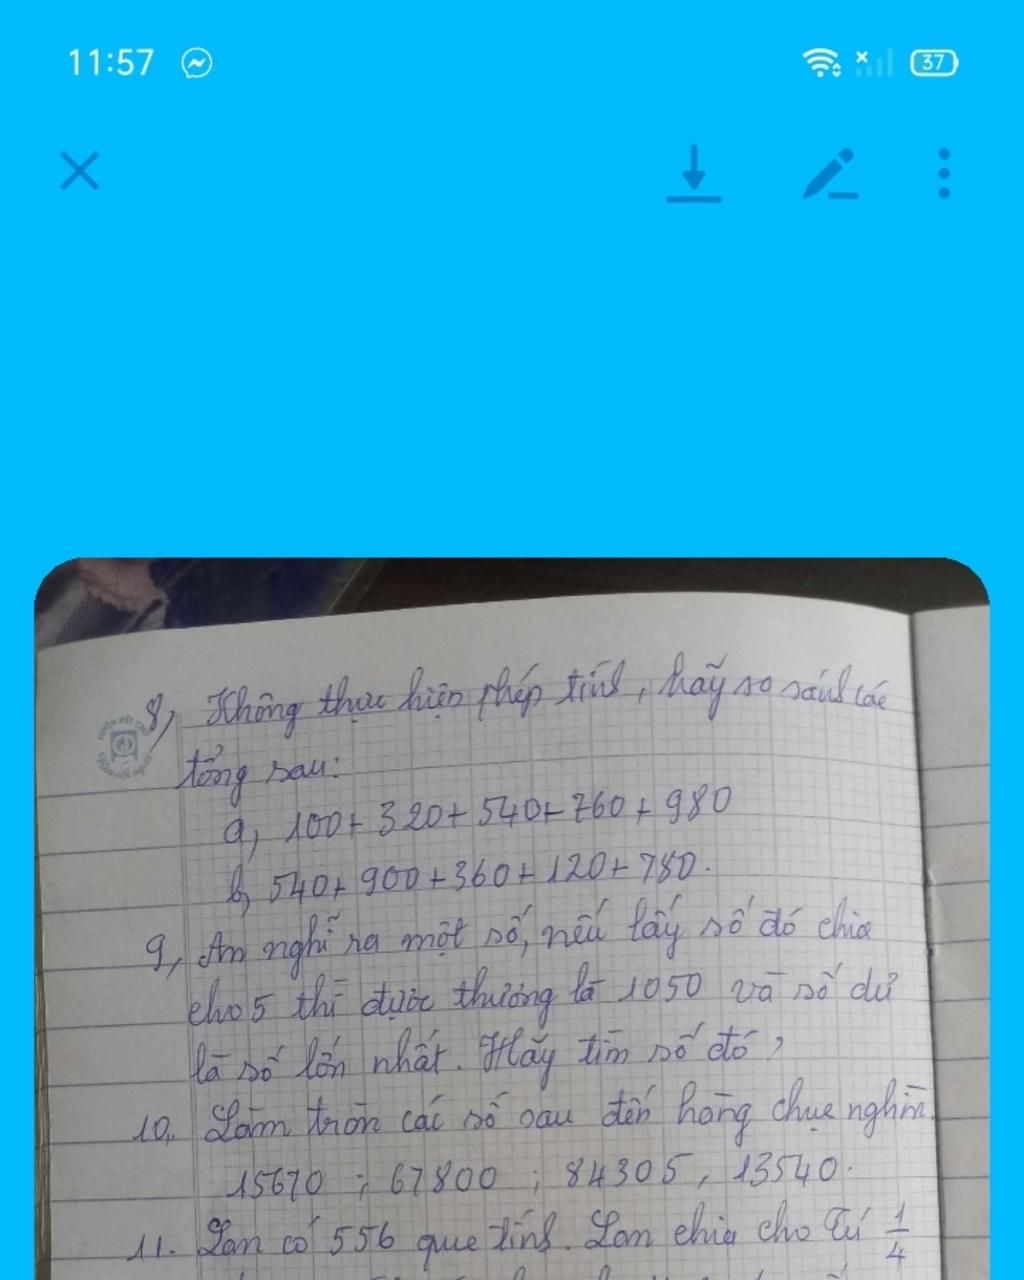 11:57
37
8, Không thực hiện phép tính, hãy so sánh các
tổng sau:
a, 100 + 320 + 540 + 760 + 980
b, 540 + 900 + 360 + 120 + 780.
9, An nghĩ ra một số, nếu lấy số đó chia
cho 5 thì được thương là 1050 và số dư
là số lớn nhất. Hãy tìm số đó?
10, Làm tròn các số sau đến hàng chục nghìn.
15670 ; 67800 ; 84305, 13540.
11. Lan có 556 que tính. Lan chia cho Tú 1/4